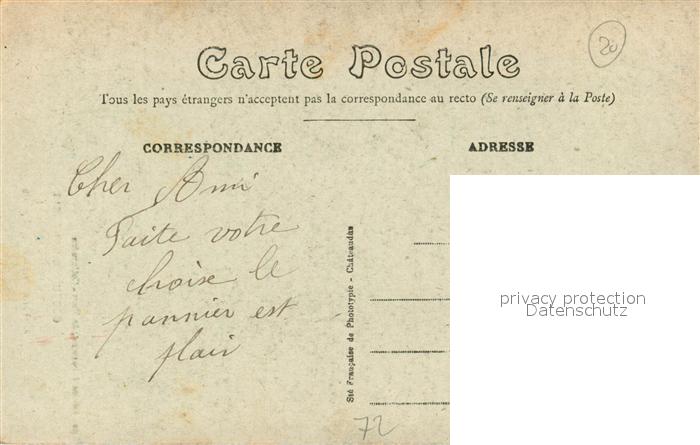 20
Carte Postale
Tous les pays étrangers n'acceptent pas la correspondance au recto (Se renseigner à la Poste)
CORRESPONDANCE
ADRESSE
Cher Ami
Faite votre
choise le
pannier est
plair
Sté Française de Phototypie - Châteaudun
72
privacy protection
Datenschutz